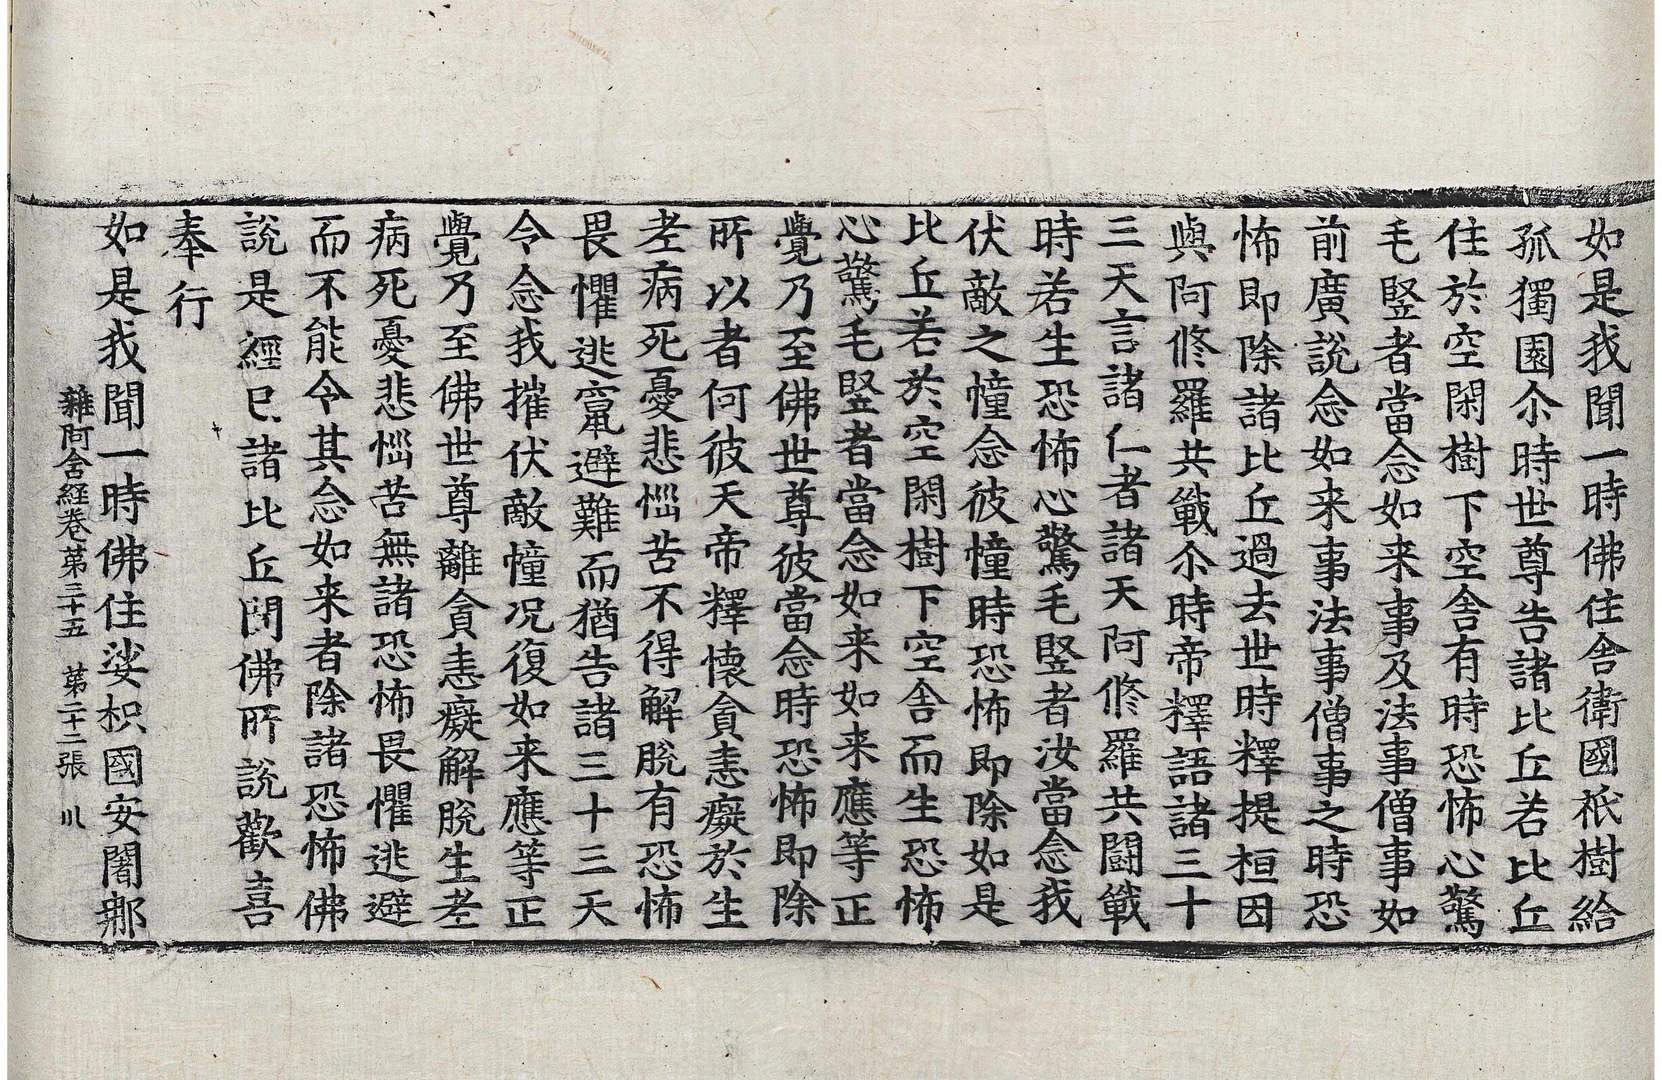 如是我聞一時佛住舍衛國祇樹給
孤獨園尒時世尊告諸比丘若比丘
住於空閑樹下空舍有時恐怖心驚
毛竪者當念如来事及法事僧事如
前廣說念如来事法事僧事之時恐
怖即除諸比丘過去世時釋提桓因
與阿修羅共戰尒時帝釋語諸三十
三天言諸仁者諸天阿修羅共闘戰
時若生恐怖心驚毛竪者汝當念我
伏敵之幢念彼幢時恐怖即除如是
比丘若於空閑樹下空舍而生恐怖
心驚毛竪者當念如来如来應等正
覺乃至佛世尊彼當念時恐怖即除
所以者何彼天帝釋懷貪恚癡於生
老病死憂悲惱苦不得解脫有恐怖
畏懼逃竄避難而猶告諸三十三天
令念我摧伏敵幢况復如来應等正
覺乃至佛世尊離貪恚癡解脫生老
病死憂悲惱苦無諸恐怖畏懼逃避
而不能令其念如来者除諸恐怖佛
說是經已諸比丘聞佛所說歡喜
奉行
如是我聞一時佛住娑枳國安闍那
雜阿含経卷第三十五 第二十二張 㲽